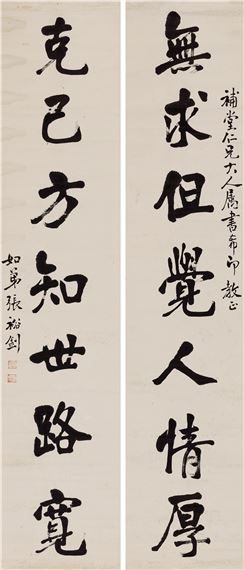 無求但覺人情厚
補堂仁兄大人属書希即教正
克己方知世路寬
如弟張裕釗